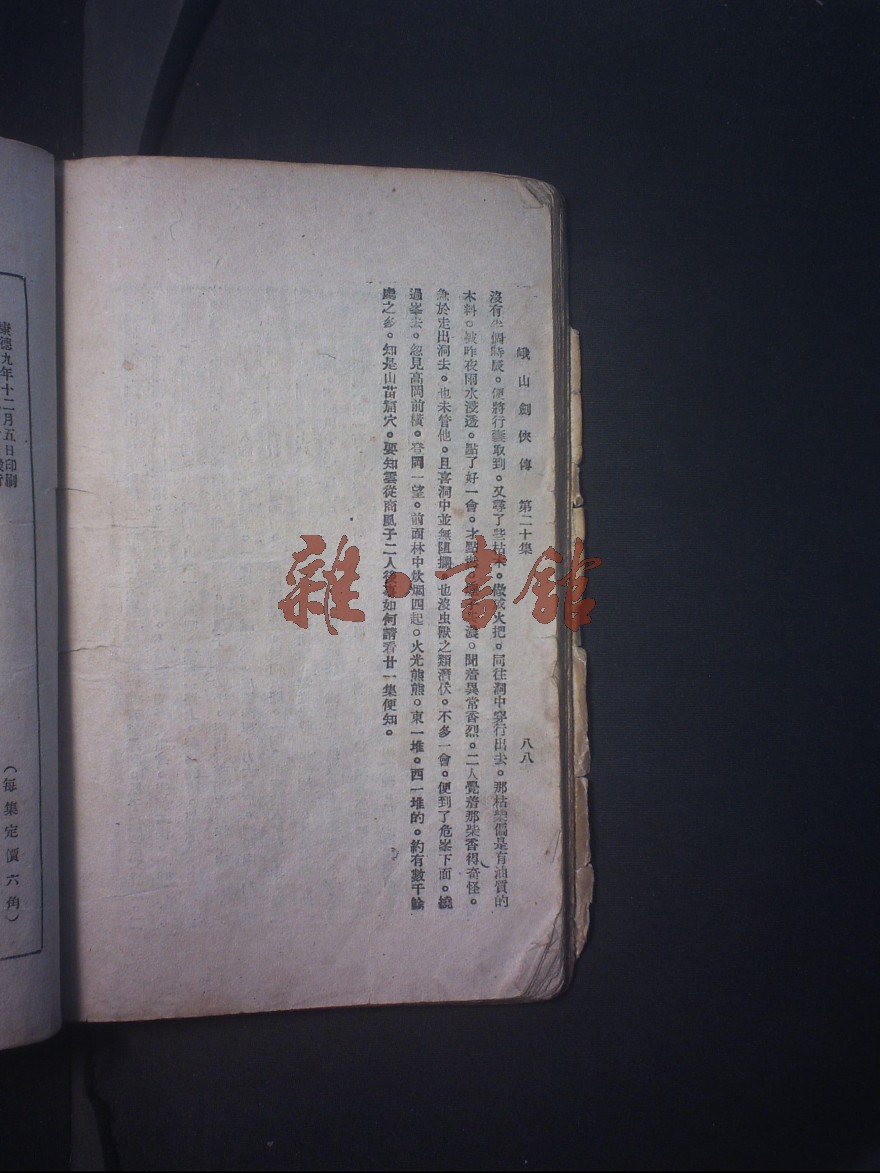 峨山劍俠傳 第二十集 八八
沒有半個時辰。便將行囊取到。又尋了些枯木。做成火把。同往洞中穿行出去。那枯 偏是有油質的
木料。被昨夜雨水浸透。點了好一會。才點 濃。聞着異常香烈。二人覺着那柴香得奇怪。
急於走出洞去。也未管他。且喜洞中並無阻攔。也沒虫獸之類潛伏。不多一會。便到了危峯下面。繞
過峯去。忽見高岡前橫。登岡一望。前面林中炊烟四起。火光熊熊。東一堆。西一堆的。約有數千餘
處之多。知是山苗窟穴。要知雲從商風子二人後事如何請看廿一集便知。
康德九年十二月五日印刷
(每集定價六角)
雜·書館